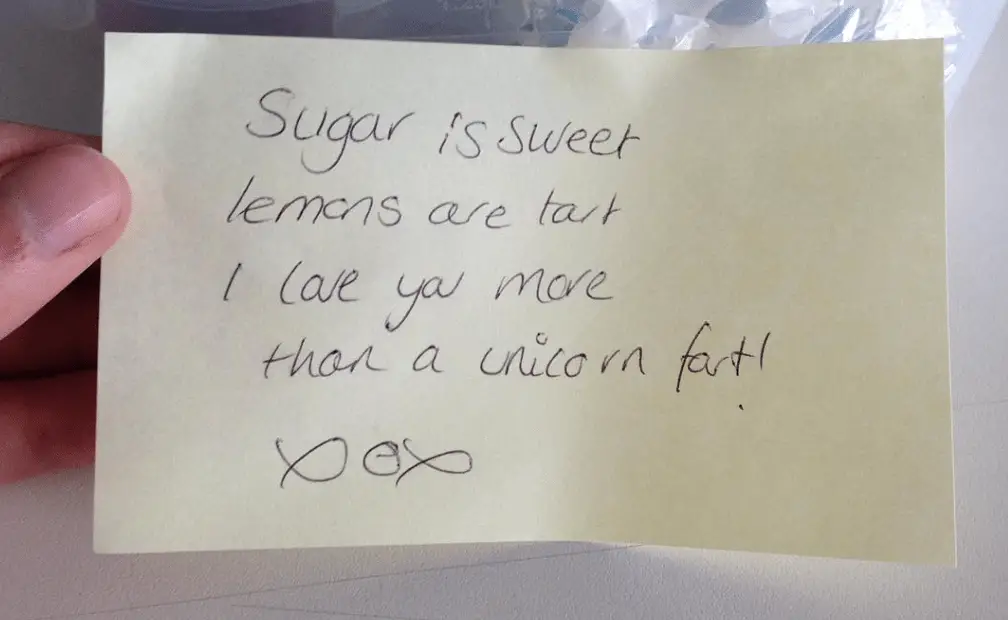 Sugar is sweet
lemons are tart
I love you more
than a unicorn fart!
xox